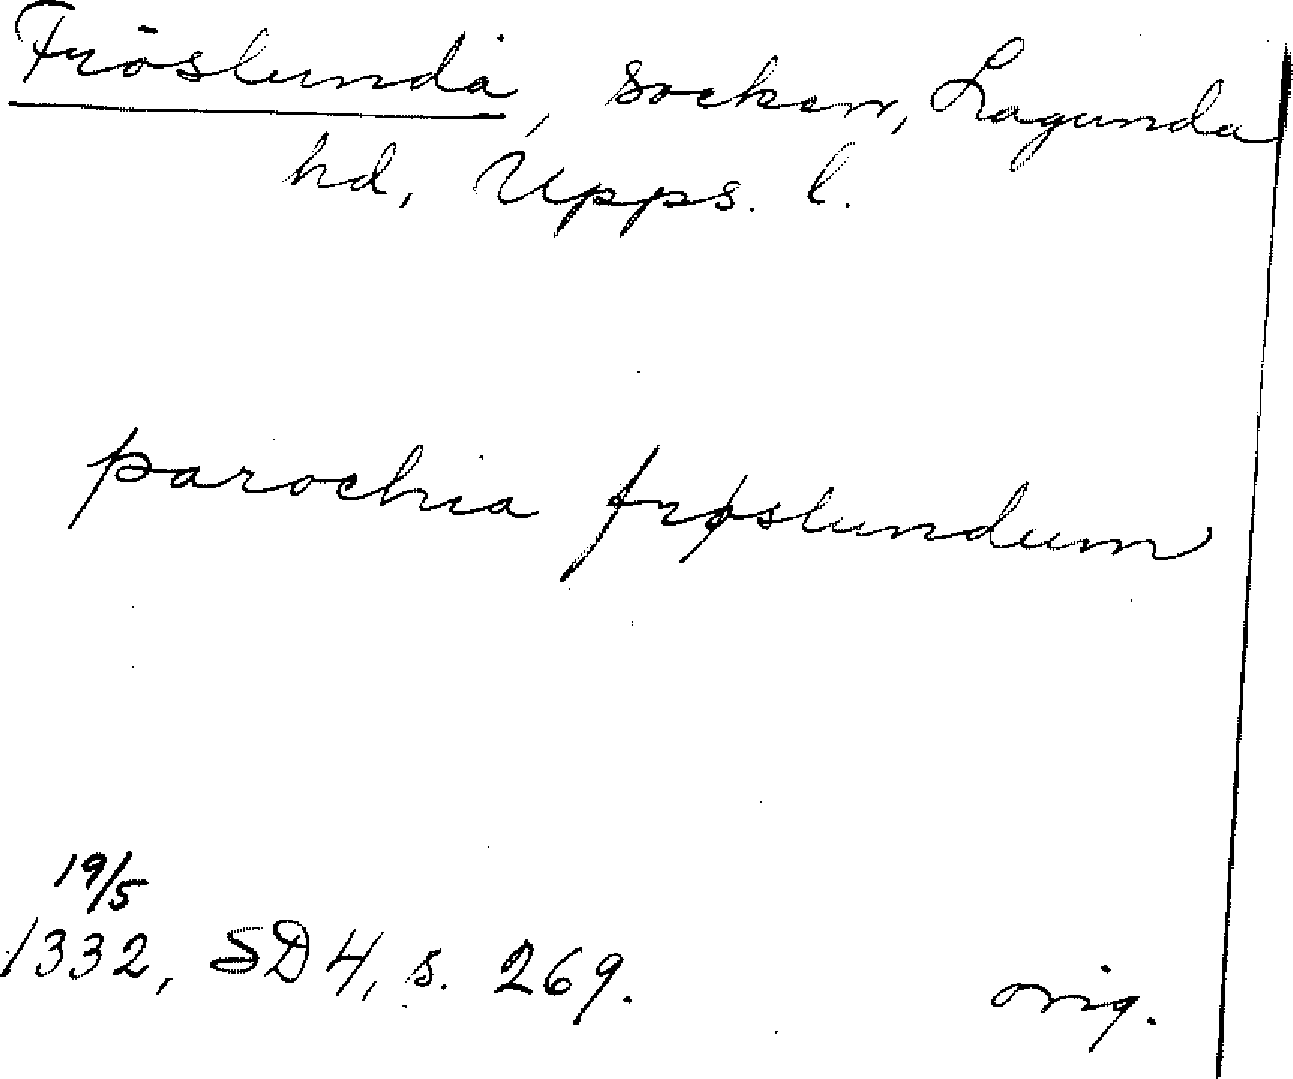 Fröslunda, socken, Lagunda
hd, Upps. l.
parochia frøslundum
19/5
1332, SD 4, s. 269. orig.